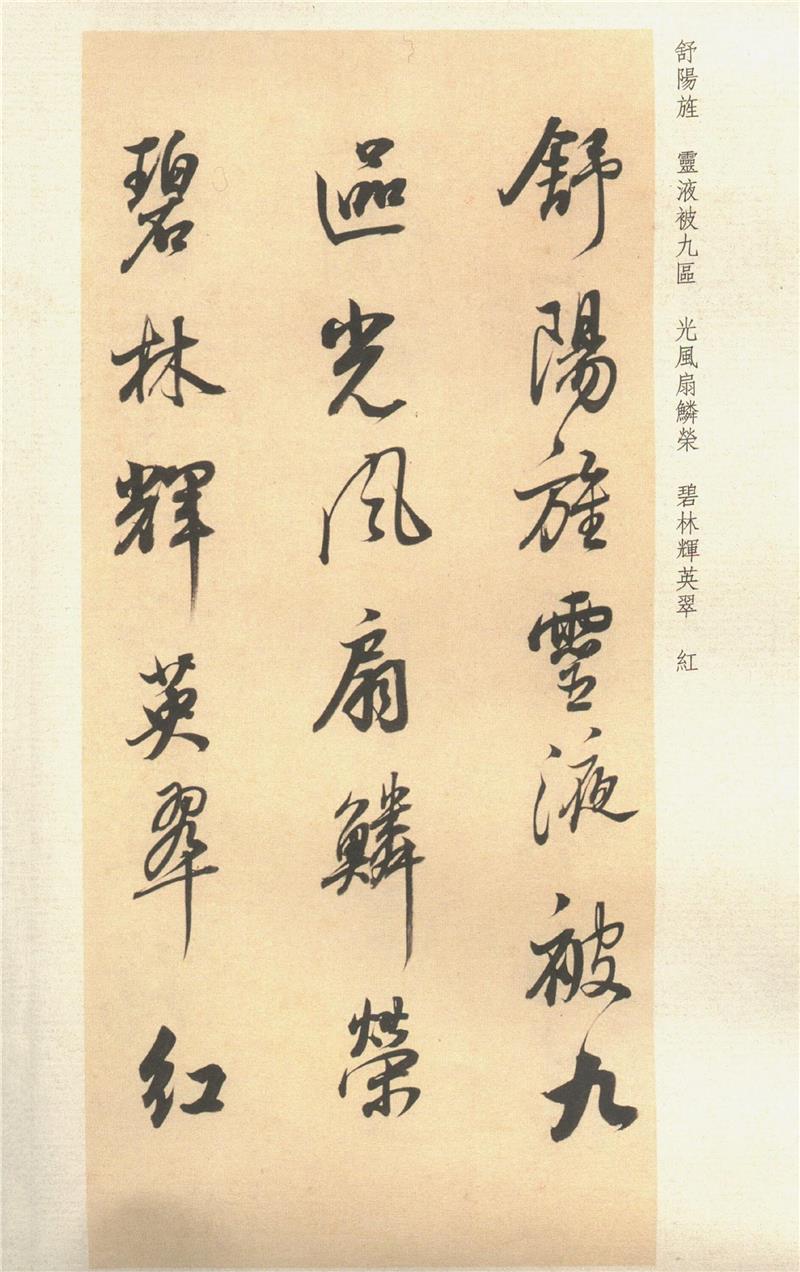 舒陽旌　靈液被九區　光風扇鱗榮　碧林輝英翠　紅
舒陽旌靈液被九
區光風扇鱗榮
碧林輝英翠紅